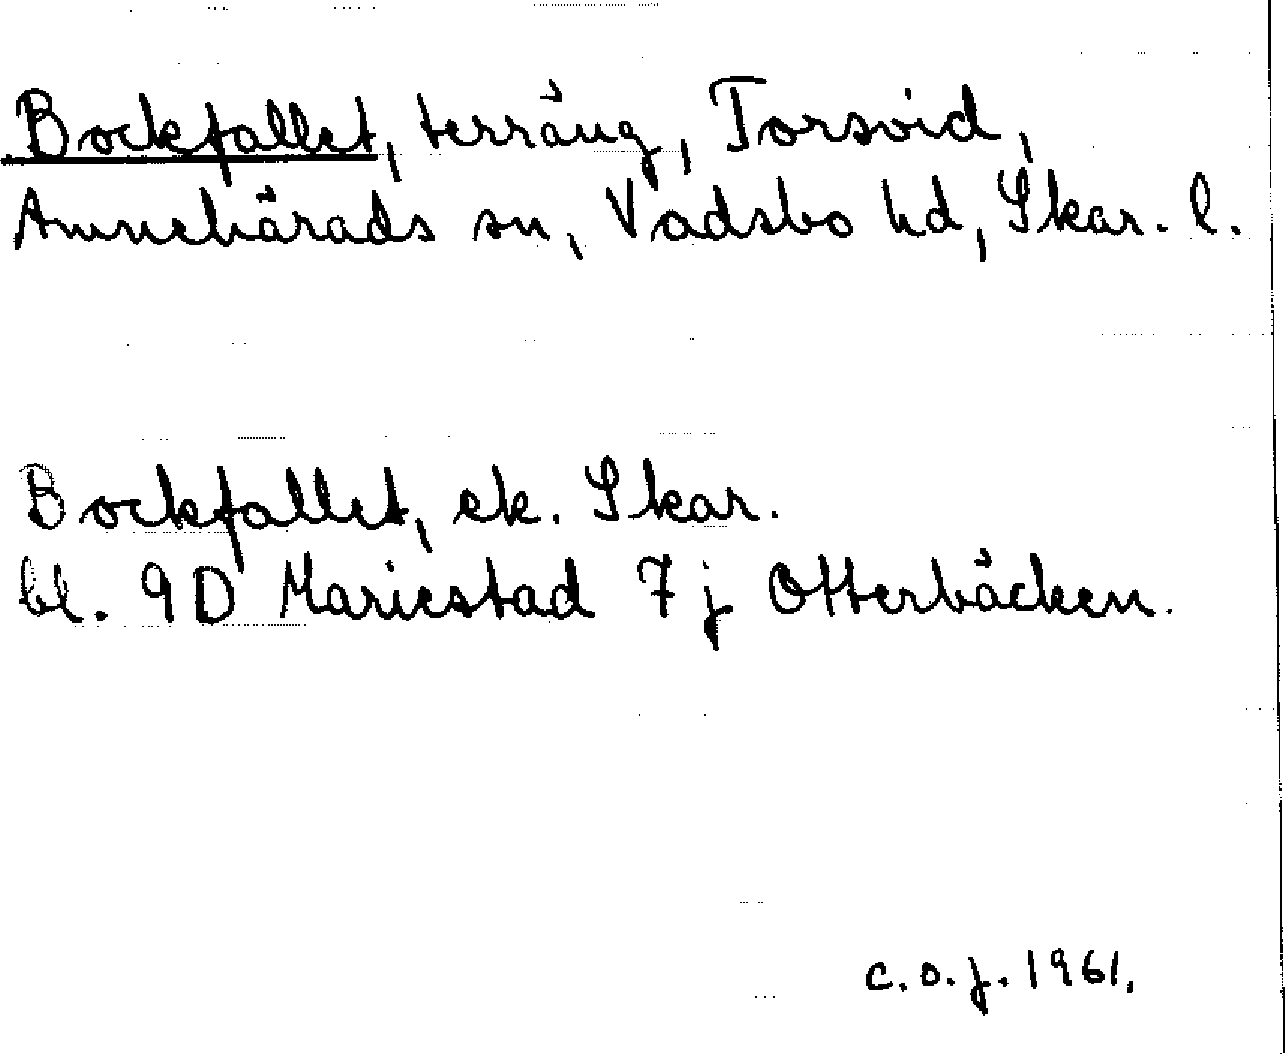 Bockfallet, terräng, Torsvid,
Amnehärads sn, Vadsbo hd, Skar. l.
Bockfallet, ek. Skar.
bl. 9D Mariestad 7j Otterbäcken.
c.o.j. 1961.